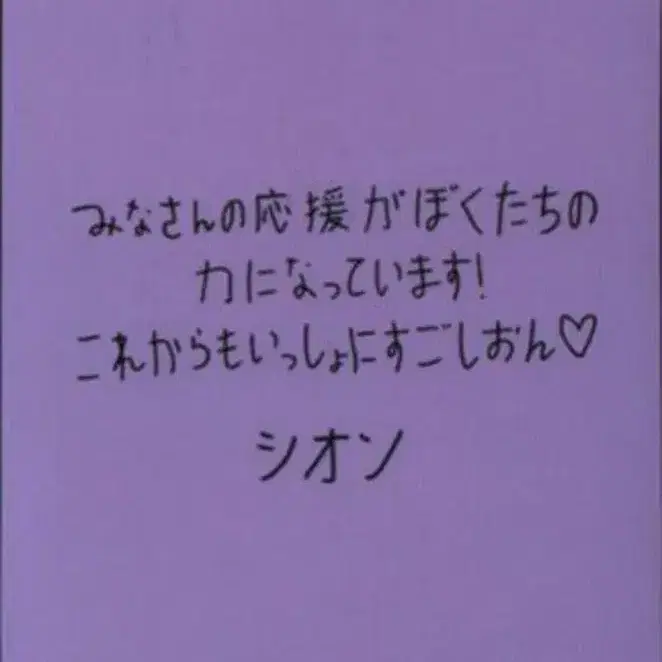 みなさんの応援がぼくたちの
力になっています!
これからもいっしょにすごしおん♡
シオン